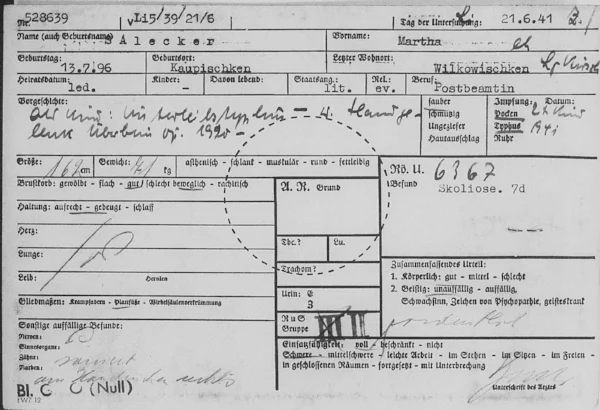 Nr. 528639 Li5/39/21/6 Tag der Untersuchung: 21.6.41
Name (auch Geburtsname) SAlecker Vorname: Martha
Geburtstag: 13.7.96 Geburtsort: Kaupischken Letzter Wohnort: Wilkowischken
Heiratsdatum: led. Kinder: – Davon lebend: Staatsang.: lit. Rel.: ev. Beruf: Postbeamtin
Vorgeschichte: sauber Impfung: Datum:
als Kind: Unterleibstyphus – schmutzig Pocken
1920 – Ungeziefer Typhus 1941
Hautausschlag Ruhr
Größe: 162 cm Gewicht: kg asthenisch - schlank - muskulär - rund - fettleibig
Rö. U. 6367
Brustkorb: gewölbt - flach - gut/schlecht beweglich - rachitisch
A. R. Grund
Befund Skoliose. 7d
Haltung: aufrecht - gebeugt - schlaff
Herz:
Lunge:
Tbc.? Lu.
Leib: Hernien
Trachom?
Zusammenfassendes Urteil:
1. Körperlich: gut - mittel - schlecht
2. Geistig: unauffällig - auffällig,
Schwachsinn, Zeichen von Psychopathie, geisteskrank
Gliedmaßen: Krampfadern - Plattfüße - Wirbelsäulenverkrümmung
Urin: E
Z
Sonstige auffällige Befunde:
RuS Gruppe III II
Nerven:
Sinnesorgane:
Zähne: saniert
Narben:
Einsatzfähigkeit: voll - beschränkt - nicht
Schwere - mittelschwere - leichte Arbeit - im Stehen - im Sitzen - im Freien -
in geschlossenen Räumen - fortgesetzt - mit Unterbrechung
Unterschrift des Arztes
Bl. G. O (Null)